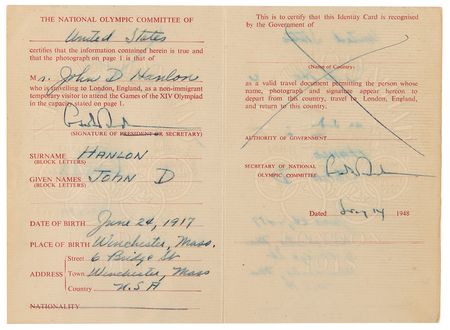 THE NATIONAL OLYMPIC COMMITTEE OF
United States
certifies that the information contained herein is true and
that the photograph on page 1 is that of
Mr. John D Hanlon
who is travelling to London, England, as a non-immigrant
temporary visitor to attend the Games of the XIV Olympiad
in the capacity stated on page 1.
(SIGNATURE OF PRESIDENT OR SECRETARY)
SURNAME HANLON
(BLOCK LETTERS)
GIVEN NAMES JOHN D
(BLOCK LETTERS)
DATE OF BIRTH June 24, 1917
PLACE OF BIRTH Winchester, Mass.
Street 6 Bridge St
ADDRESS Town Winchester, Mass
Country U.S.A
NATIONALITY
This is to certify that this Identity Card is recognised
by the Government of
(Name of Country)
as a valid travel document permitting the person whose
name, photograph and signature appear hereon to
depart from this country, travel to London, England,
and return to this country.
AUTHORITY OF GOVERNMENT
SECRETARY OF NATIONAL
OLYMPIC COMMITTEE
Dated July 14 1948